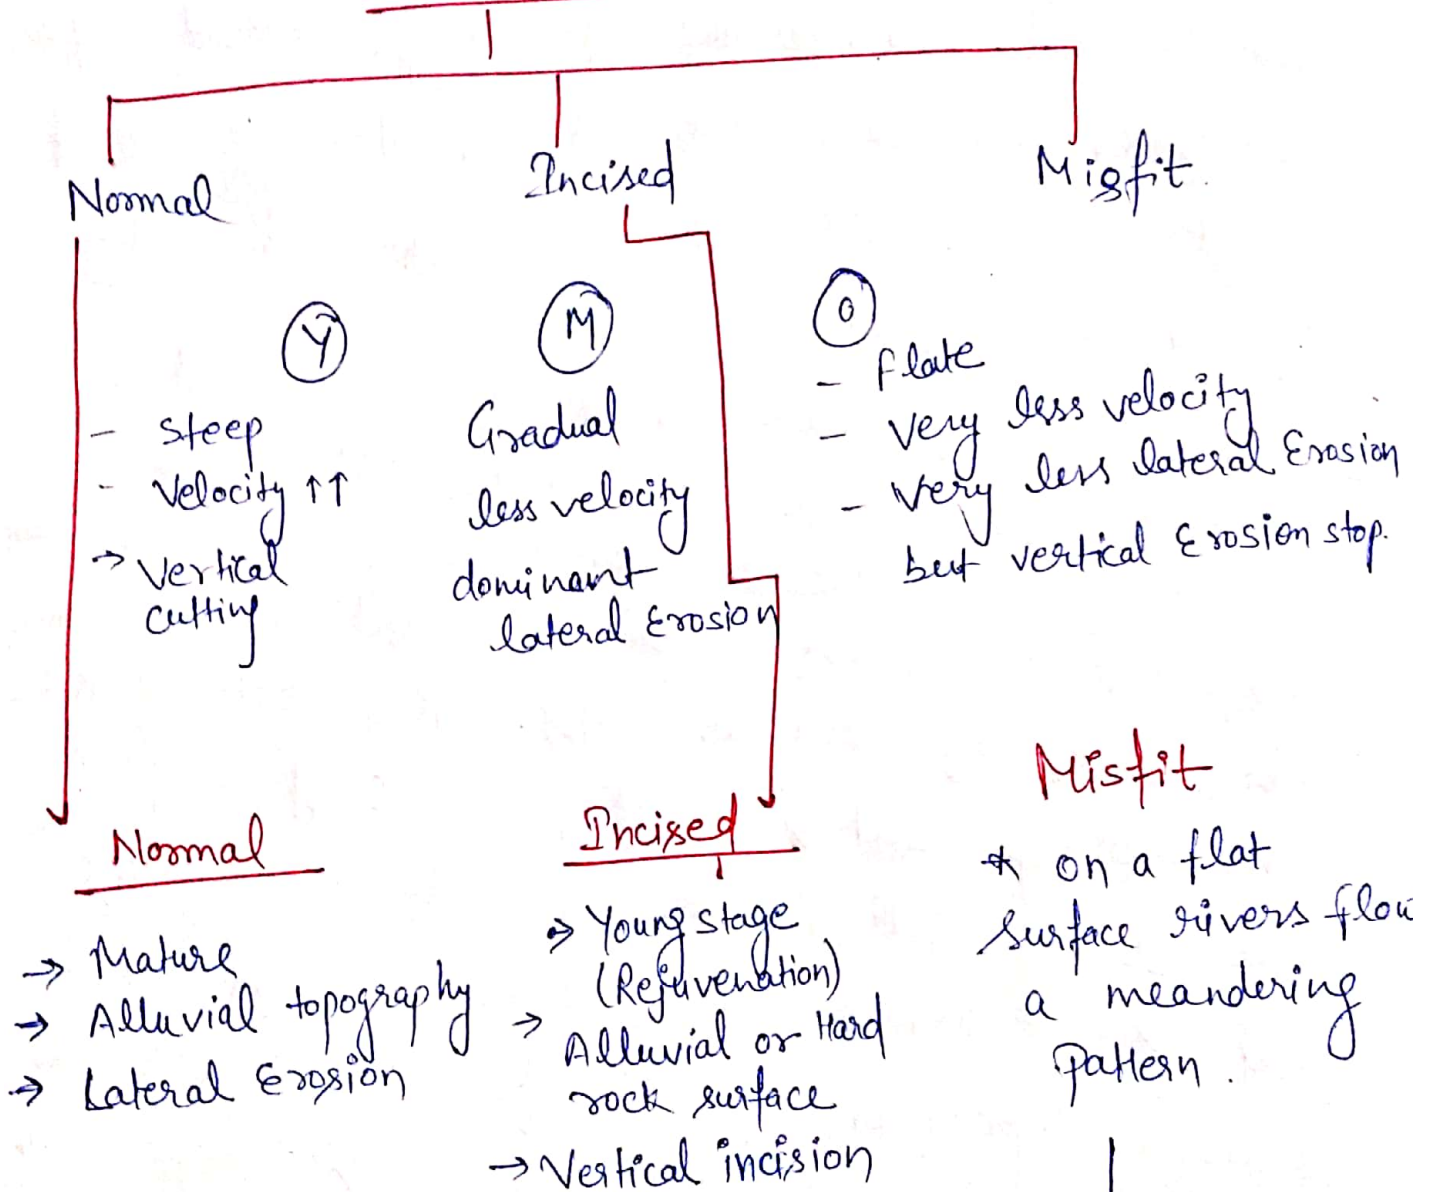 Normal
Incised
Misfit
Y
- steep
- velocity ↑↑
→ vertical
cutting
M
Gradual
less velocity
dominant
lateral Erosion
O
- flate
- very less velocity
- very less lateral Erosion
but vertical Erosion stop.
Normal
→ Mature
→ Alluvial topography
→ Lateral Erosion
Incised
→ Young stage
(Rejuvenation)
→ Alluvial or Hard
rock surface
→ Vertical incision
Misfit
* on a flat
surface rivers flow
a meandering
pattern.